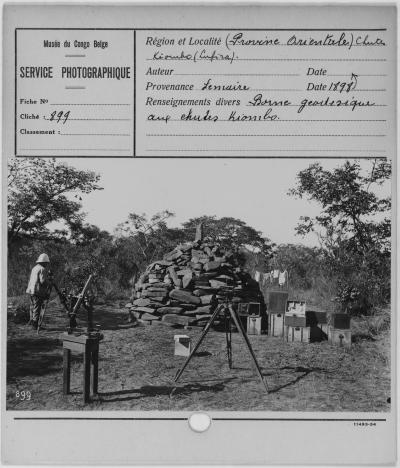 Musée du Congo Belge
SERVICE PHOTOGRAPHIQUE
Fiche No
Cliché : 899
Classement :
Région et Localité (Province Orientale) Chutes
Kiombo (Lufira).
Auteur Date
Provenance Lemaire Date 1898
Renseignements divers Borne geodésique
aux chutes Kiombo.
899
11493-54